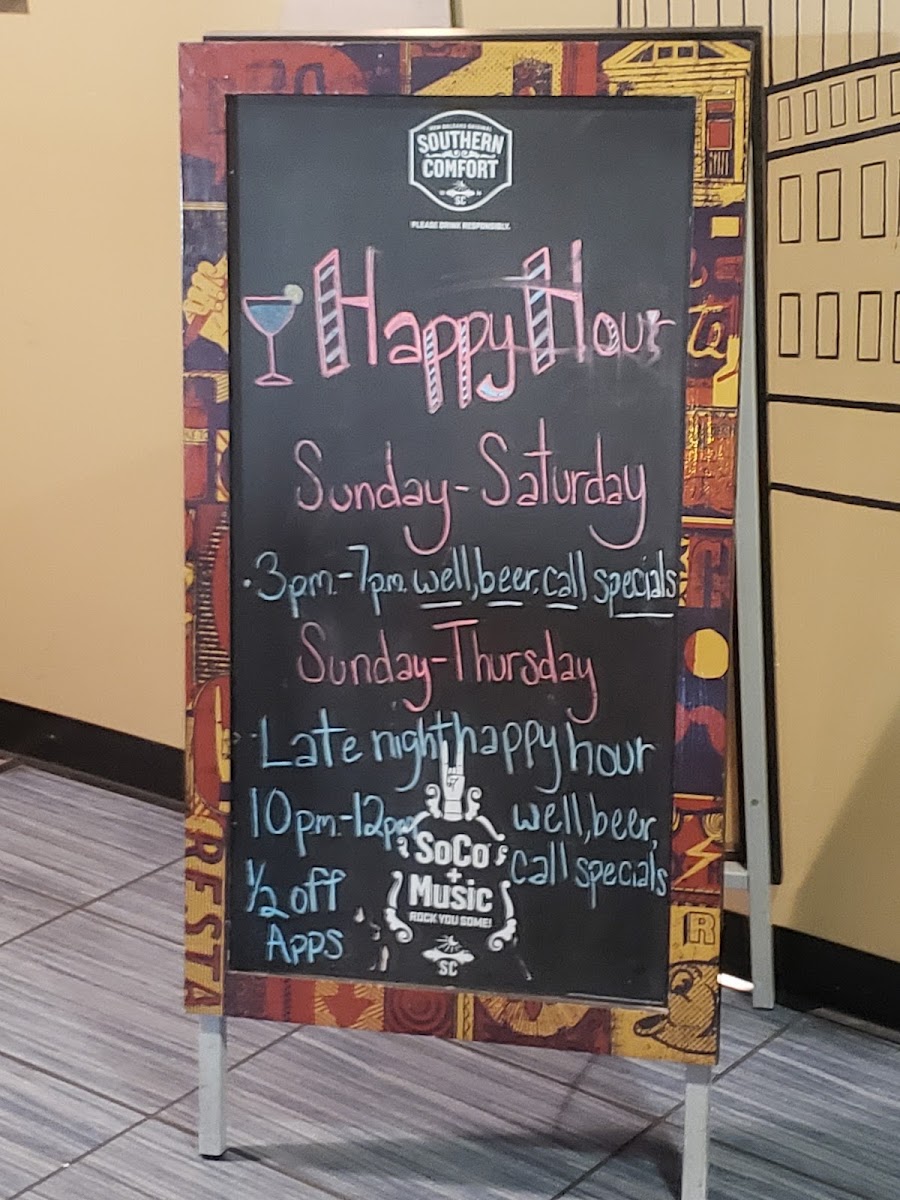 NEW ORLEANS ORIGINAL
SOUTHERN
COMFORT
SC
PLEASE DRINK RESPONSIBLY.
Happy Hour
Sunday-Saturday
·3pm.-7p.m. well, beer, call specials
Sunday-Thursday
Late night happy hour
10pm.-12pm
well, beer,
call specials
1/2 off
Apps
SoCo
+
Music
ROCK YOU SOME!
SC
RESTA
R